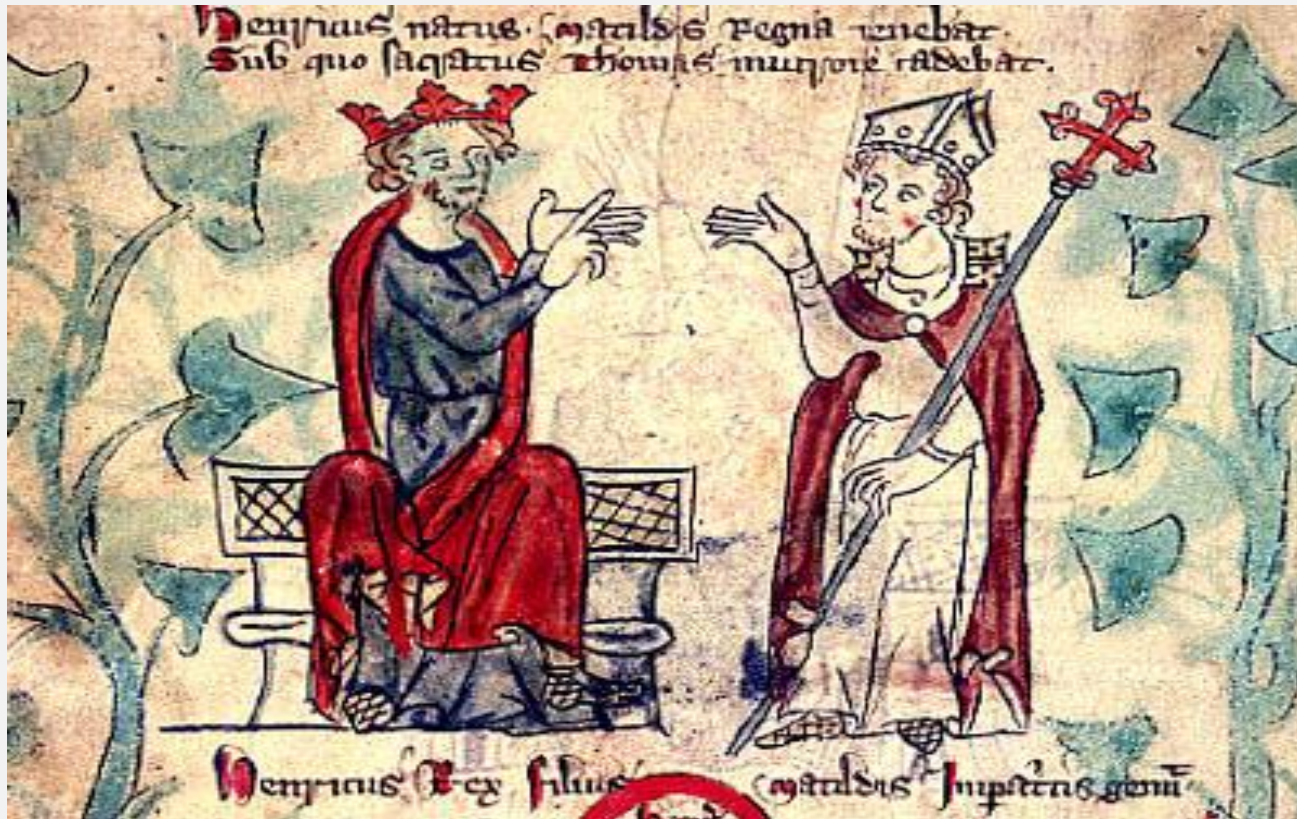 Henricus natus Matildis regna tenebat.
Sub quo sacratus Thomas mucrone cadebat.
Henricus Rex filius Matildis Imp̄atricis